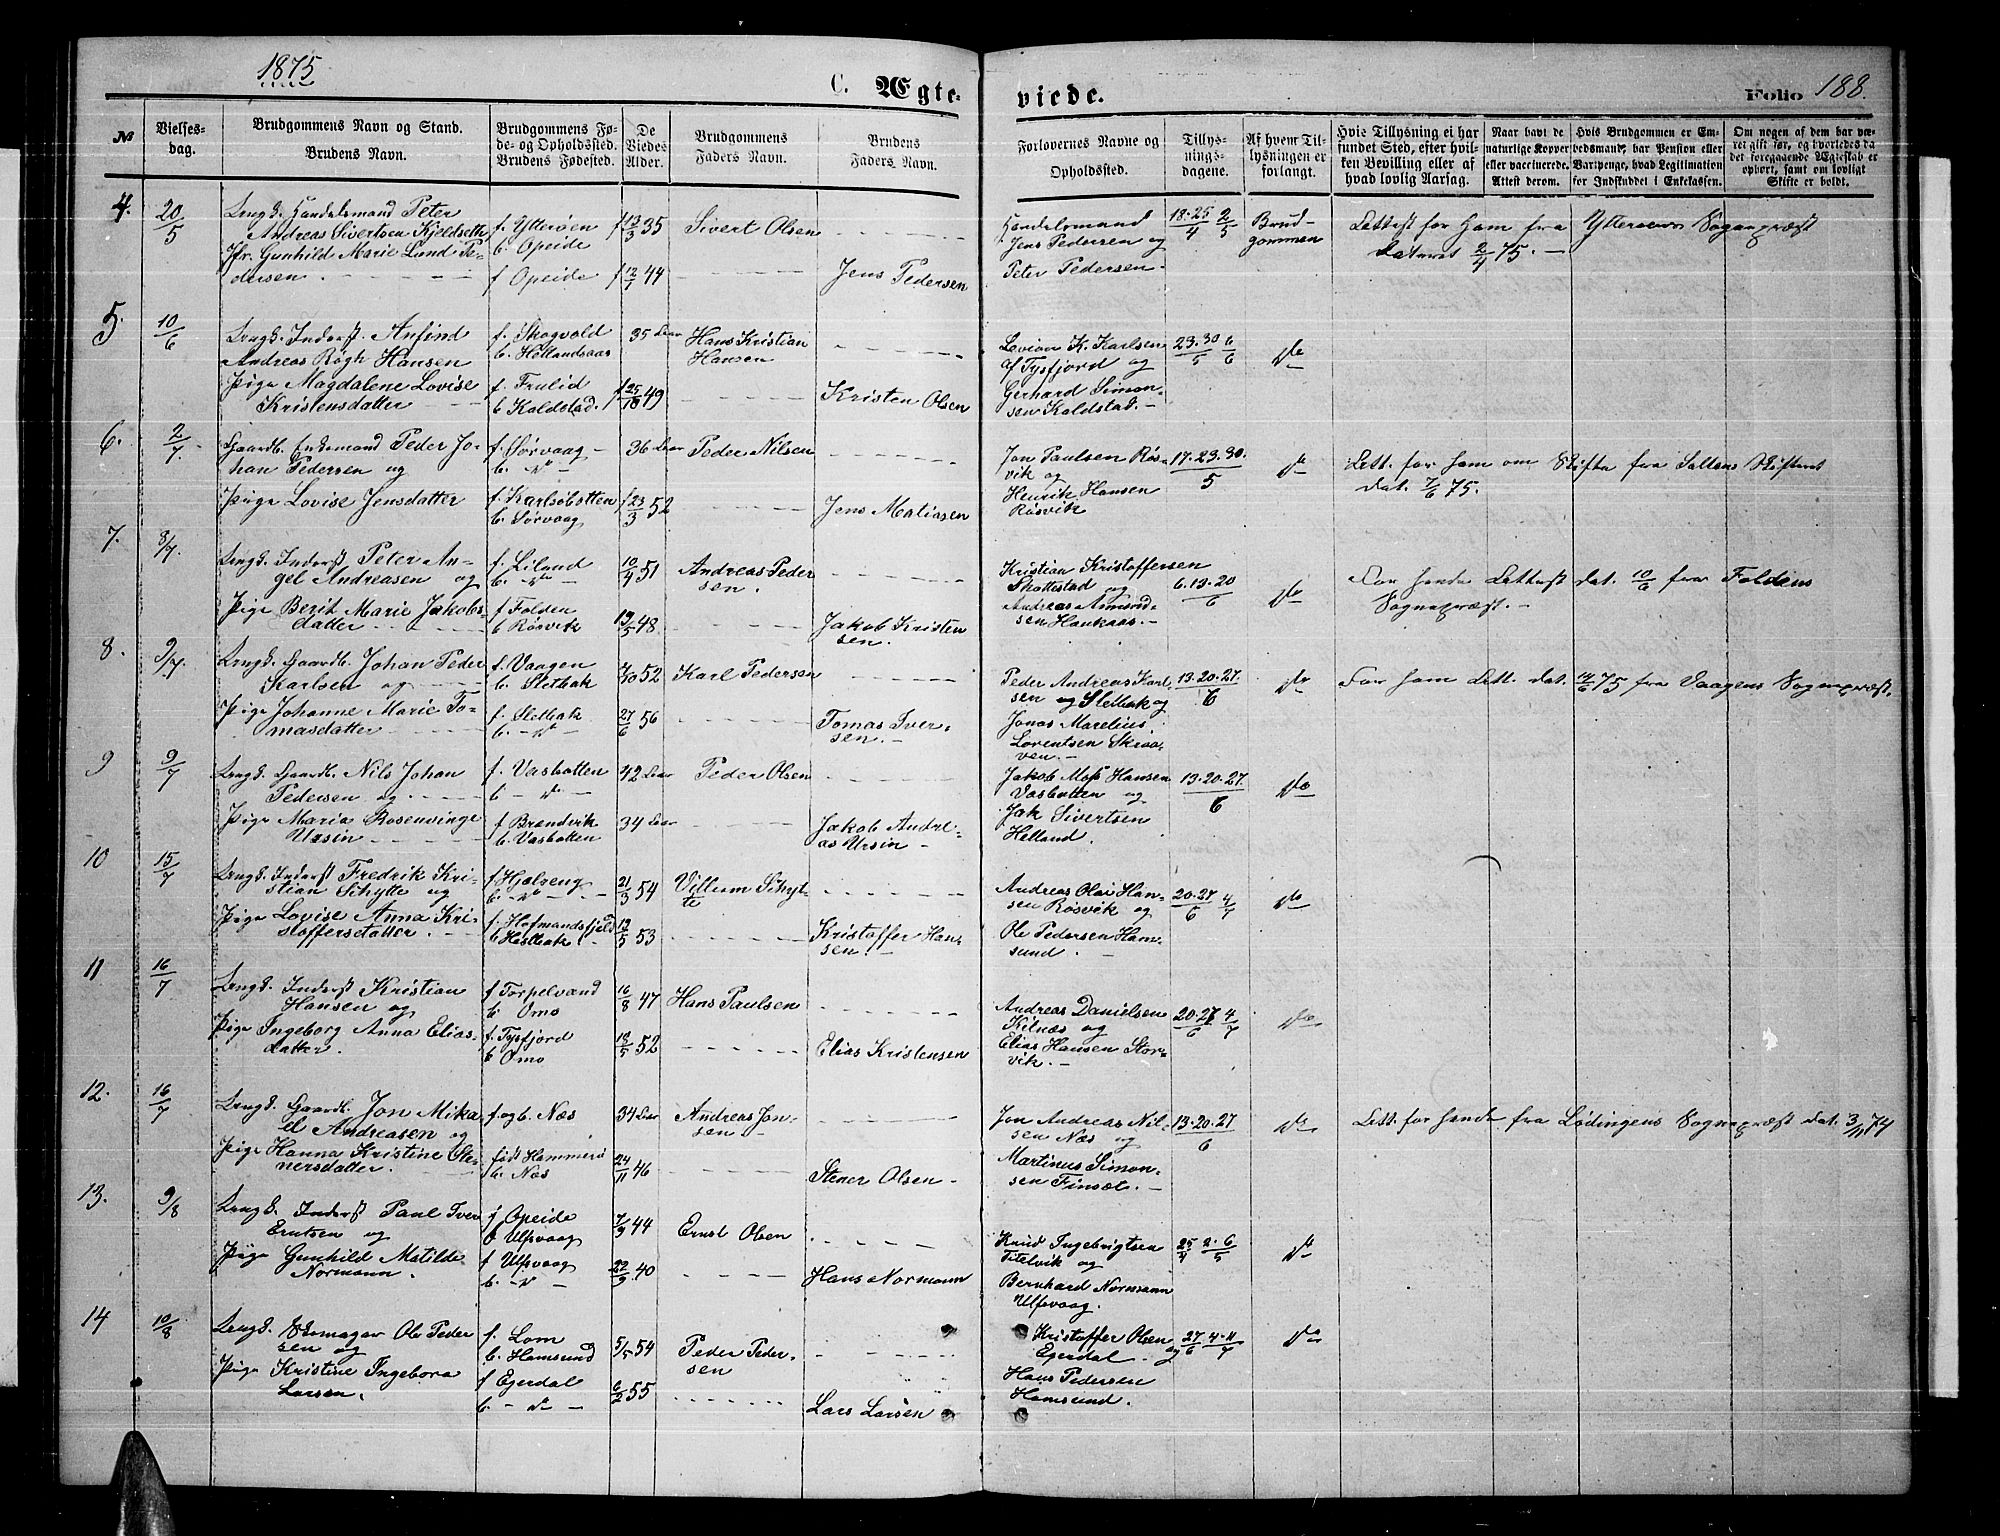 1875
C. Ægte-
viede.
Folio 188.
№
Vielses-
dag.
Brudgommens Navn og Stand.
Brudens Navn.
Brudgommens Fø-
de- og Opholdssted.
Brudens Fødested.
De
Viedes
Alder.
Brudgommens
Faders Navn.
Brudens
Faders Navn.
Forlovernes Navne og
Opholdssted.
Tillys-
nings-
dagene.
Af hvem Til-
lysningen er
forlangt.
Hvis Tillysning ei har
fundet Sted, efter hvil-
ken Bevilling eller af
hvad lovlig Aarsag.
Naar havt de
naturlige Kopper
eller vaccinerede.
Attest derom.
Hvis Brudgommen er Em-
bedsmand, har Pension eller
Vartpenge, hvad Legitimation
for Indskuddet i Enkekassen.
Om nogen af dem har væ-
ret gift før, og hvorledes da
det foregaaende Ægteskab er
ophørt, samt om lovligt
Skifte er holdt.
4. 20/5
Ungk. Handelsmand Peter
Andreas Sivertsen Kjeldseth
Jfr. Gunhild Marie Lund Pe-
dersen.
f. Ytterøen
b. Opeide
f Opeide
f 13/3 35
f 12/1 44
Sivert Olsen
Jens Pedersen
Handelsmand
Jens Pedersen og
Peter Pedersen.
18.25/4 2/5
Brud-
gommen
Lettest for ham fra Ytterøens Sognepræst
dateret 2/4 75.
5. 10/6
Ungk. Inderst. Anfind
Andreas Røgh Hansen
Pige Magdalene Lovise
Kristensdatter
f. Skogvold
b. Hellandsaas
f. Frulid
b. Kaldstad.
35 Aar
f 25/18 49
Hans Kristian
Hansen
Kristen Olsen
Levion K. Karlsen
af Tysfjord og
Gerhard Simon-
sen Kaldstad.
23.30/5 6/6
do
6. 2/7
Gaardb. Enkemand Peder Jo-
han Pedersen og
Pige Lovise Jensdatter
f. Sørvaag
b. do
f. Karlsøbotten
b. Sørvaag
36 Aar
f 23/3 52
Peder Nilsen
Jens Matiasen
Jon Paulsen Røs-
vik og
Henrik Hansen
Røsvik
17.23.30./5
do
Lett. for ham om Skifte fra Saltens Skifteret
dat. 7/6 75.
7. 8/7.
Ungk. Inderst Peter An-
gel Andreasen og
Pige Berit Marie Jakobs-
datter
f. Liland
b. do
f Folden
b Røsvik
10/4 51
19/5 48.
Andreas Peder
sen.
Jakob Kristen
sen.
Kristian Kristoffersen
Skottestad og
Andreas Amund-
sen Haukaas.
6.13.20/6
do
For hende Lettest dat. 10/6 fra Foldens
Sognepræst.
8. 9/7.
Ungk. Gaardb. Johan Peder
Karlsen og
Pige Johanne Marie To-
masdatter
f. Vaagen
b. Sletbak
f. Sletbak
b. do
52
27/6 56
Karl Pedersen
Tomas Iver-
sen.
Peder Andreas Karl-
sen Sletbak og
Jonas Marelius
Lorentsen Skraa-
ven.
13.20.27./6
do
For ham Lett. dat. 14/6 75 fra Vaagens Sognepræst.
9 9/7
Ungk. Gaardb. Nils Johan
Pedersen og
Pige Maria Rosenvinge
Ursin
f. Vasbotten
b do
f Brændvik
b. Vasbotten
42 Aar
34 Aar
Peder Olsen
Jakob Andre-
as Ursin
Jakob Mos Hansen
Vasbotten og
Jak Sivertsen
Helland.
13.20.27./6
do
10 15/7
Ungk. Inderst Fredrik Kri-
stian Schytte og
Pige Lovise Anna Kri-
stoffersdatter.
f Hjelseng
b. do
f. Hofmandsfjeld
b Hestbak.
21/3 54
12/5 53
Villum Schyt-
te
Kristoffer Han-
sen.
Andreas Olai Han-
sen Røsvik og
Ole Pedersen Ham-
sund.
20.27/6 4/7
do
11 16/7
Ungk. Inderst Kristian
Hansen og
Pige Ingeborg Anna Elias-
datter.
f Torpelvand
b. Omo
f. Tysfjord
b Omo
16/8 47
18/5 52
Hans Paulsen
Elias Kristensen
Andreas Danielsen
Kilnæs og
Elias Hansen Stor-
vik.
20.27/6 4/7
do
12. 16/7
Ungk. Gaardb. Jon Mika
el Andreasen og
Pige Hanna Kristine Ste-
nersdatter.
f og b. Næs
født Hammerø
b. Næs
34 Aar
24/11 46
Andreas Jon-
sen
Stener Olsen
Jon Andreas Nil-
sen Næs og
Martinus Simon-
sen Finsæt.
13.20.27/6
do
Lett. for hende fra Lødingens Sognepræst dat. 3/11 74
13. 9/8
Ungk. Inderst Paul Iver
Erntsen og
Pige Gunhild Matilde
Normann.
f Opeide
b Ulfsvaag
f Ulfsvaag
b. do
7/9 44
22/9 40
Ernst Olsen
Hans Normann
Knud Ingebrigtsen
Titelvik og
Bernhard Normann
Ulfsvaag.
25/4 2.6/5
do
14 10/8
Ungk. Skomager Ole Peder
sen og
Pige Kristine Ingebora
Larsen.
f. Lom
b. Hamsund
f Egerdal
b. do
5/5 54
6/2 55
Peder Peder-
sen
Lars Larsen
Kristoffer Olsen
Egerdal og
Hans Pedersen
Hamsund.
27/6 4.11/7
do